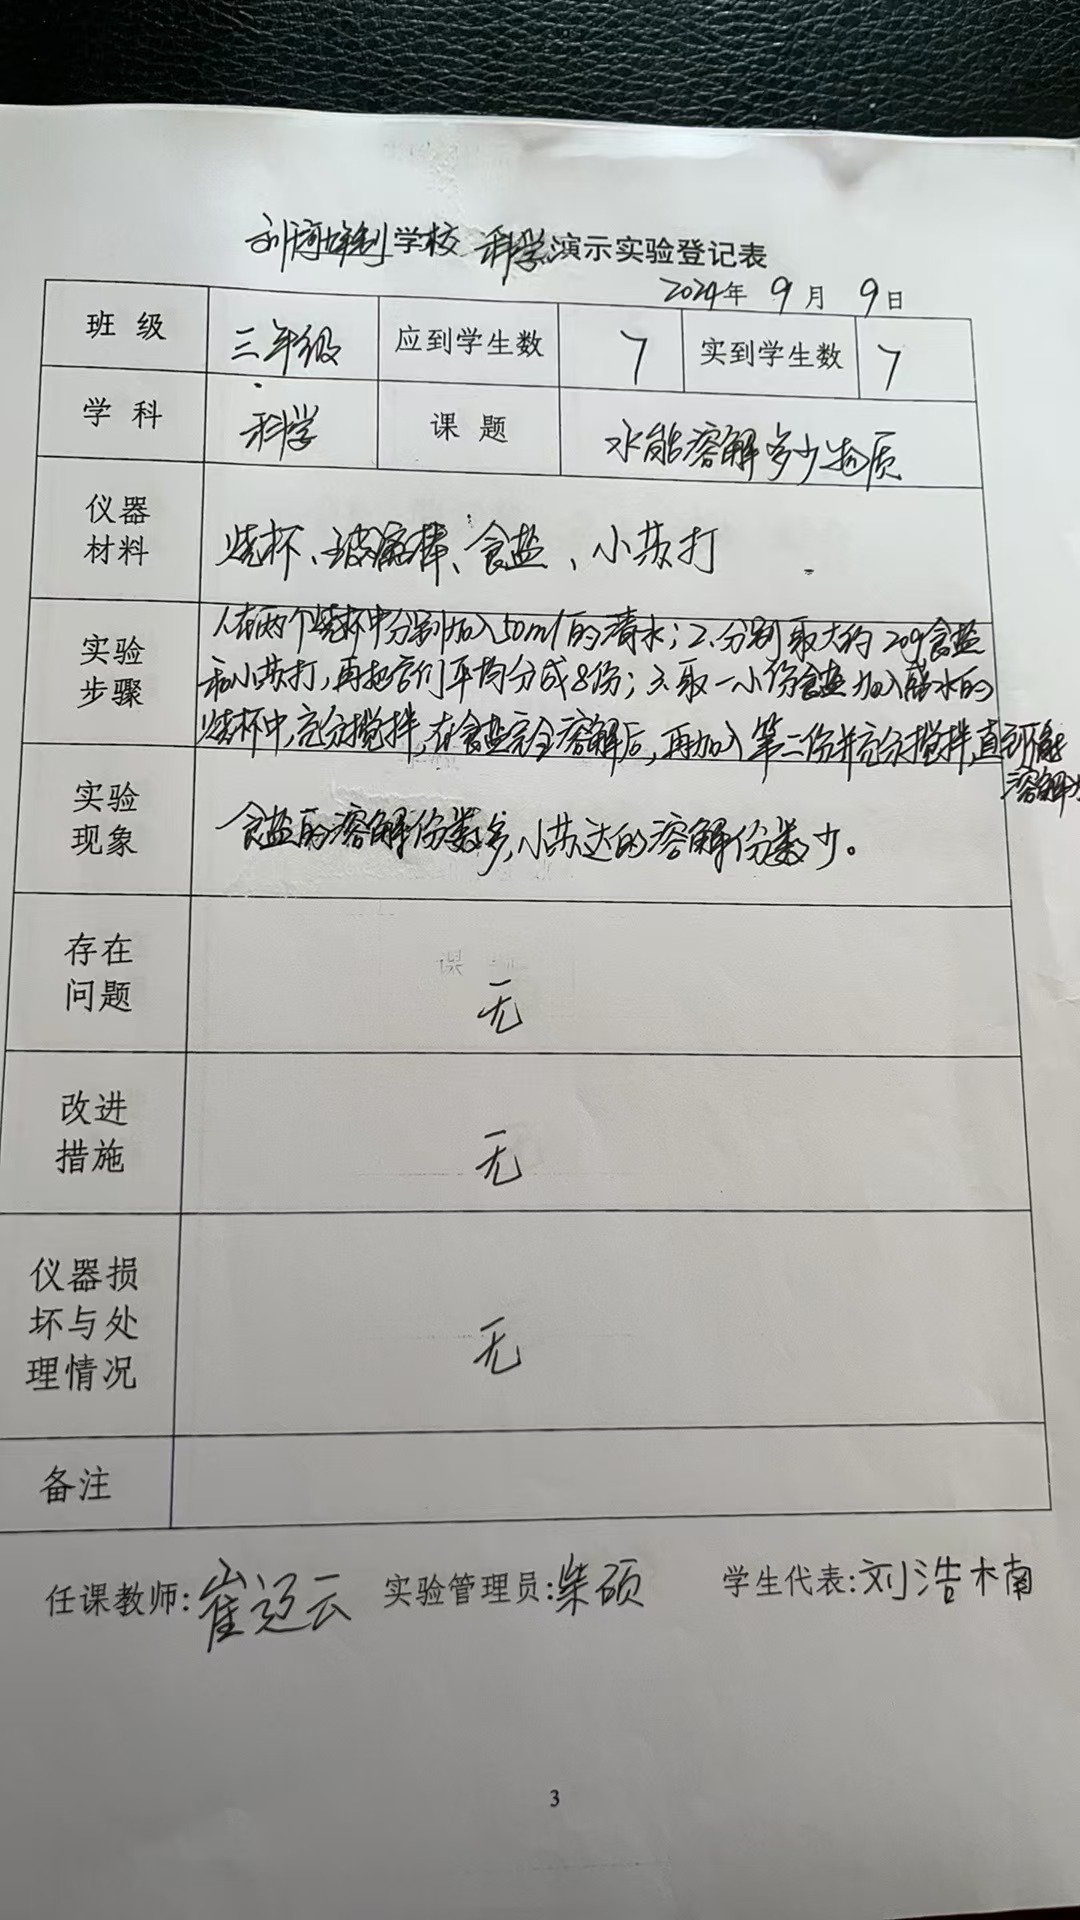 学校 科学演示实验登记表
2024年 9月 9日
班级 三年级 应到学生数 7 实到学生数 7
学科 科学 课题 水能溶解多少物质
仪器材料 烧杯、玻璃棒、食盐、小苏打
实验步骤 1.在两个烧杯中分别加入50ml的清水;2.分别取大约20g食盐
和小苏打,再把它们平均分成8份;3.取一小份食盐加入盛水的
烧杯中,充分搅拌,在食盐完全溶解后,再加入第二份并充分搅拌,直到不能
溶解为
实验现象 食盐的溶解份数多,小苏达的溶解份数少。
存在问题 无
改进措施 无
仪器损坏与处理情况 无
备注
任课教师:崔迎云 实验管理员:柴硕 学生代表:刘浩楠
3